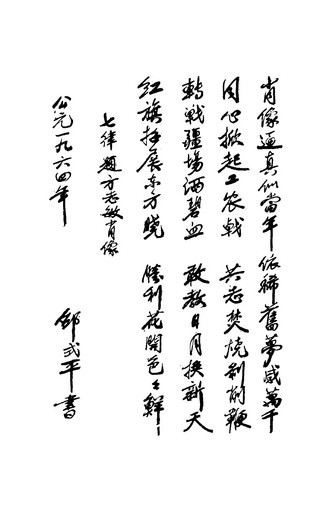 肖像逼真似當年 依稀舊夢感萬千
同心掀起工农戟 共志焚燒剥削鞭
轉戰疆場洒碧血 敢教日月换新天
红旗招展东方曉 勝利花開色々鮮！
七律題方志敏肖像
公元一九六四年 邵式平書